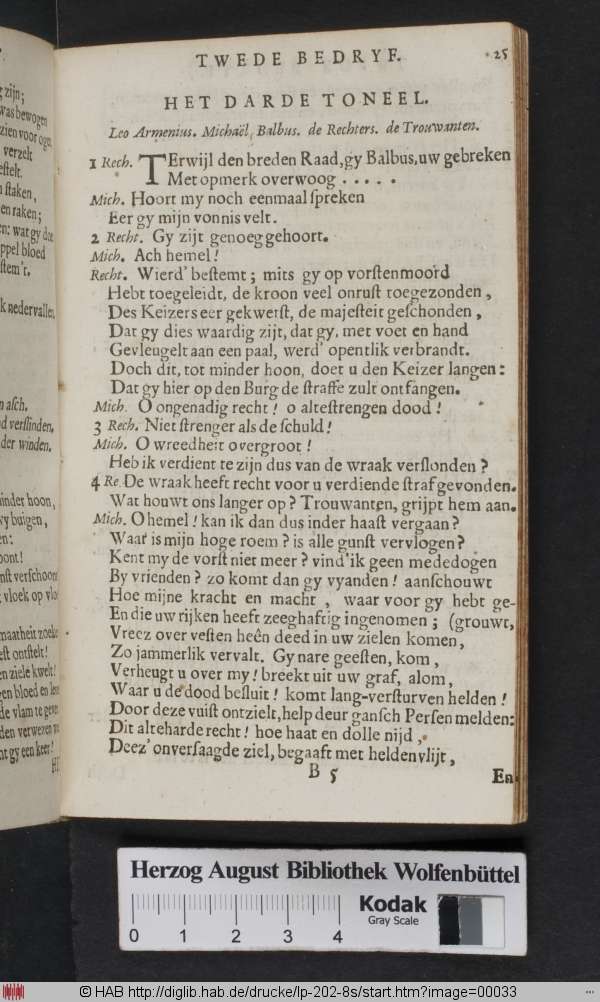 zijn;
was bewogen
zien voor ogen
verzelt
estelt.
staken,
en raken;
en: wat gy
ppel bloed
stem't.
k nedervallen
n asch.
d verslinden,
der winden.
inder hoon,
vy buigen,
en:
oont!
nst verschoon
vloek op
maatheit zoeke
est ontstelt!
en ziele kwelt!
en bloed en
de vlam te geven
den verwezen
nt gy een keer!
TWEDE BEDRYF. 25
HET DARDE TONEEL.
Leo Armenius. Michaël, Balbus. de Rechters. de Trouwanten.
1 Rech. TErwijl den breden Raad, gy Balbus, uw gebreken
Met opmerk overwoog . . . . .
Mich. Hoort my noch eenmaal spreken
Eer gy mijn vonnis velt.
2 Recht. Gy zijt genoeg gehoort.
Mich. Ach hemel!
Recht. Wierd' bestemt; mits gy op vorstenmoord
Hebt toegeleidt, de kroon veel onrust toegezonden,
Des Keizers eer gekwetst, de majesteit geschonden,
Dat gy dies waardig zijt, dat gy, met voet en hand
Gevleugelt aan een paal, werd' opentlik verbrandt.
Doch dit, tot minder hoon, doet u den Keizer langen:
Dat gy hier op den Burg de straffe zult ontfangen.
Mich. O ongenadig recht! o altestrengen dood!
3 Rech. Niet strenger als de schuld!
Mich. O wreedheit overgroot!
Heb ik verdient te zijn dus van de wraak verslonden?
4 Re. De wraak heeft recht voor u verdiende straf gevonden.
Wat houwt ons langer op? Trouwanten, grijpt hem aan.
Mich. O hemel! kan ik dan dus in der haast vergaan?
Waar is mijn hoge roem? is alle gunst vervlogen?
Kent my de vorst niet meer? vind'ik geen mededogen
By vrienden? zo komt dan gy vyanden! aanschouwt
Hoe mijne kracht en macht, waar voor gy hebt ge-
En die uw rijken heeft zeeghaftig ingenomen; (grouwt,
Vreez over vesten heên deed in uw zielen komen,
Zo jammerlik vervalt. Gy nare geesten, kom,
Verheugt u over my! breekt uit uw graf, alom,
Waar u de dood besluit! komt lang-versturven helden!
Door deze vuist ontzielt, help deur gansch Persen melden:
Dit alteharde recht! hoe haat en dolle nijd,
Deez' onversaagde ziel, begaaft met heldenvlijt,
B 5 En
Herzog August Bibliothek Wolfenbüttel
Kodak
Gray Scale
0 1 2 3 4
© HAB http://diglib.hab.de/drucke/lp-202-8s/start.htm?image=00033